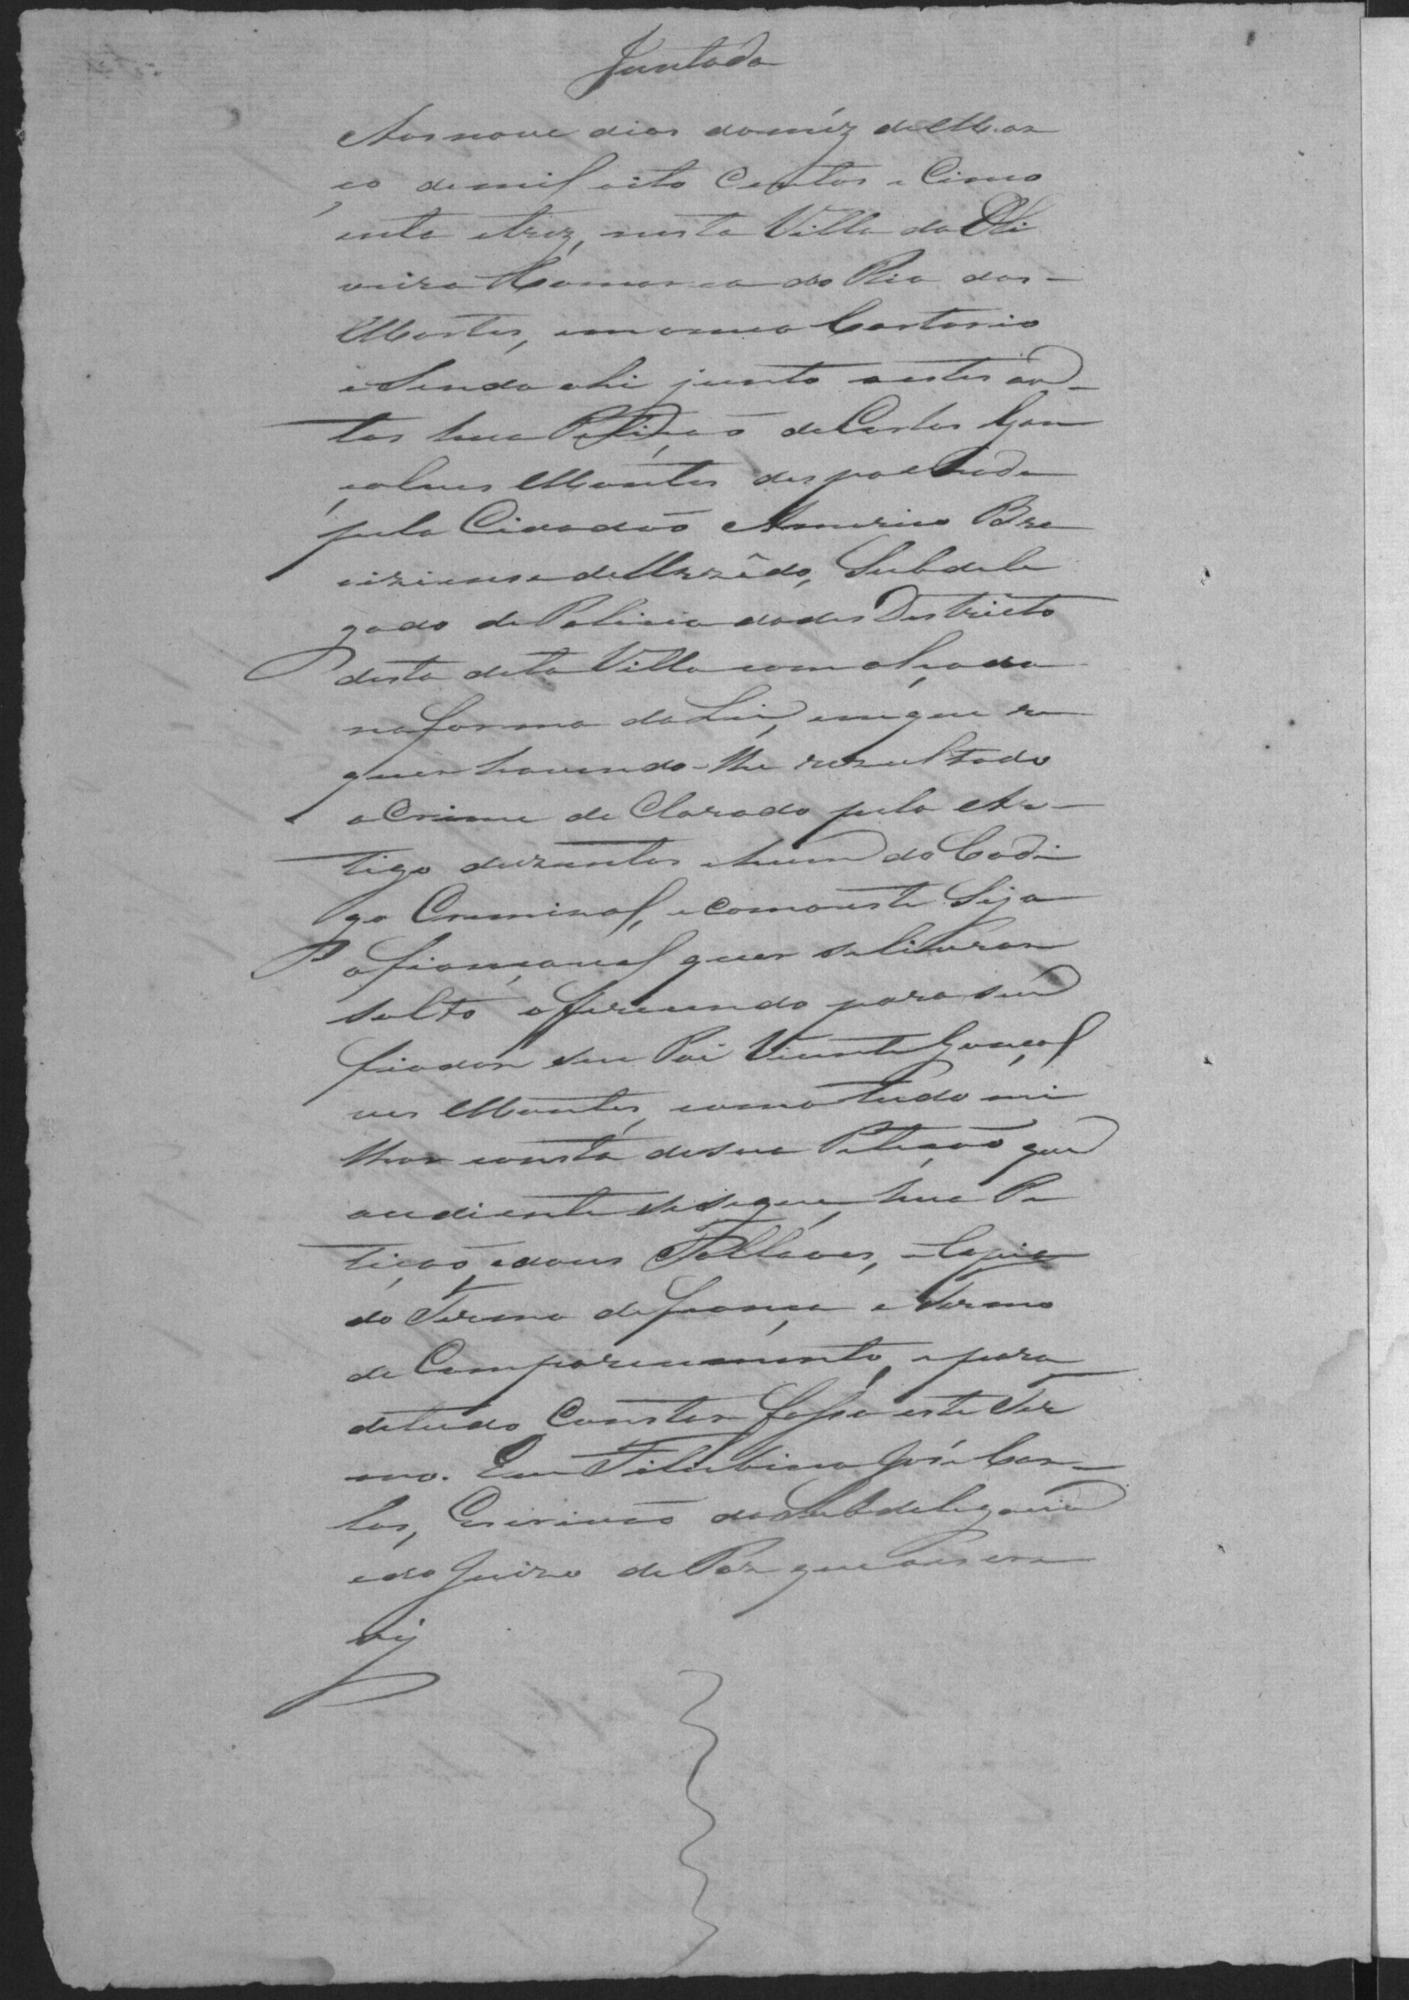 Juntada
Aos nove dias do mêz de Mar
ço de mil oito Centos e Cinco
enta e trez, nesta Villa da Oli
veira Comarca do Rio das -
Mortes, em o meu Cartorio
e Sendo ahi junto a estes au -
tos hua Petição de Carlos Gon
çalves Montes despachada
pelo Cidadão Americo Bra
ziziense de Azzêdo, Subdele
gado de Policia do des Destricto
desta deta Villa com alçada
na forma da Lei, em que re
quer havendo-lhe rezultado
o Crime de Clarado pelo Ar -
tigo duzentos e hum do Codi
go Criminal, e como este Seja
afiançavel quer se livrar
solto oferecendo para seu
fiador seu Pai Vicente Gonçal
ves Montes, como tudo mi
lhor consta de sua Petição que
audiente se segue, hua Pe
tição, e dous Fellaves, e Copia
do Termo de fiança e Termo
de Comparecimento, e para
de tudo Constar fasso este Ter
mo. Eu Filisbino José Car -
los, Escrivão da Subdelegacia
e do Juizo de Paz que o escre
vy